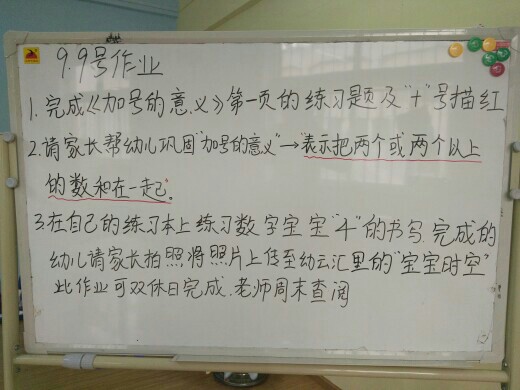 9.9号作业
1.完成《加号的意义》第一页的练习题及"+"号描红
2.请家长帮幼儿巩固"加号的意义"→表示把两个或两个以上
的数和在一起。
3.在自己的练习本上练习数字宝宝"4"的书写.完成的
幼儿请家长拍照将照片上传至幼云汇里的"宝宝时空"
此作业可双休日完成.老师周末查阅